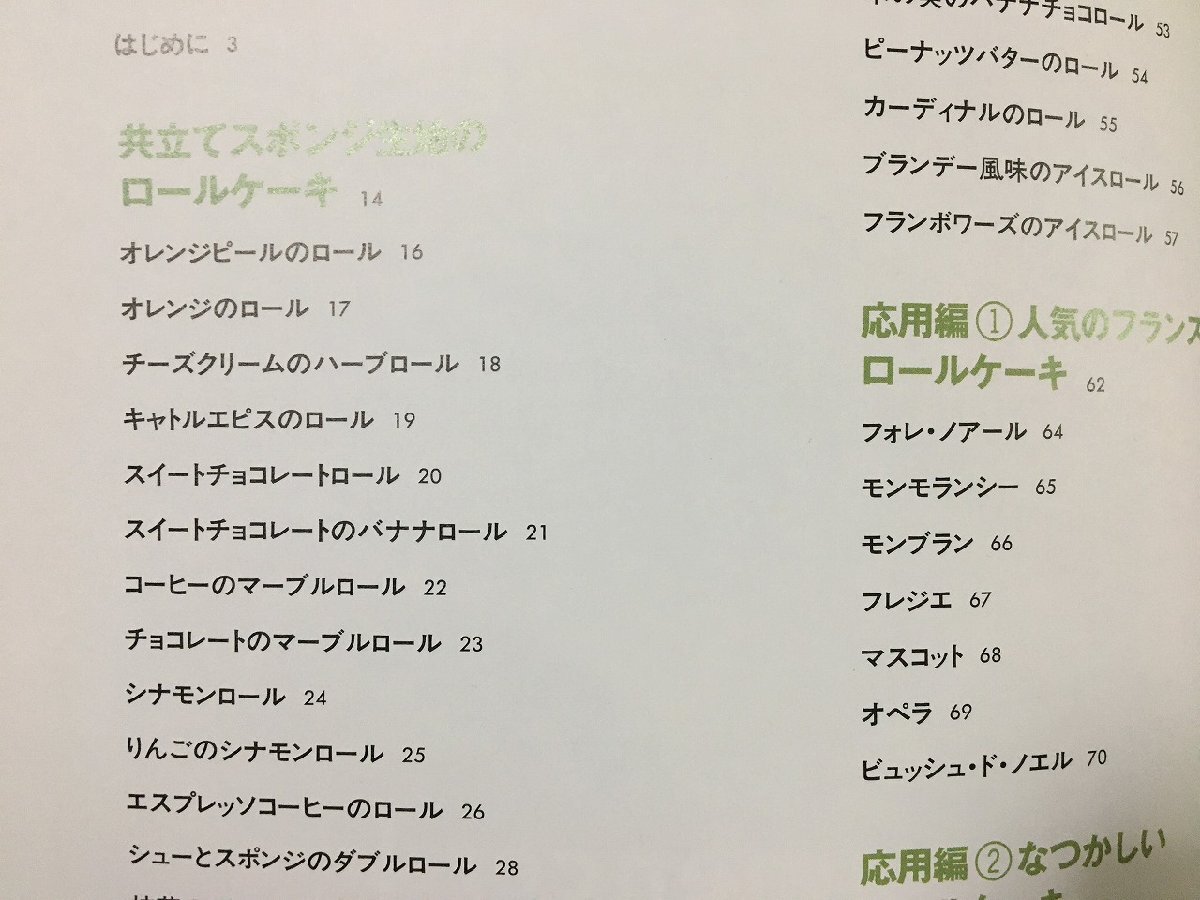 はじめに 3
共立てスポンジ生地の
ロールケーキ 14
オレンジピールのロール 16
オレンジのロール 17
チーズクリームのハーブロール 18
キャトルエピスのロール 19
スイートチョコレートロール 20
スイートチョコレートのバナナロール 21
コーヒーのマーブルロール 22
チョコレートのマーブルロール 23
シナモンロール 24
りんごのシナモンロール 25
エスプレッソコーヒーのロール 26
シューとスポンジのダブルロール 28
バナナチョコロール 53
ピーナッツバターのロール 54
カーディナルのロール 55
ブランデー風味のアイスロール 56
フランボワーズのアイスロール 57
応用編①人気のフランス
ロールケーキ 62
フォレ・ノアール 64
モンモランシー 65
モンブラン 66
フレジエ 67
マスコット 68
オペラ 69
ビュッシュ・ド・ノエル 70
応用編②なつかしい